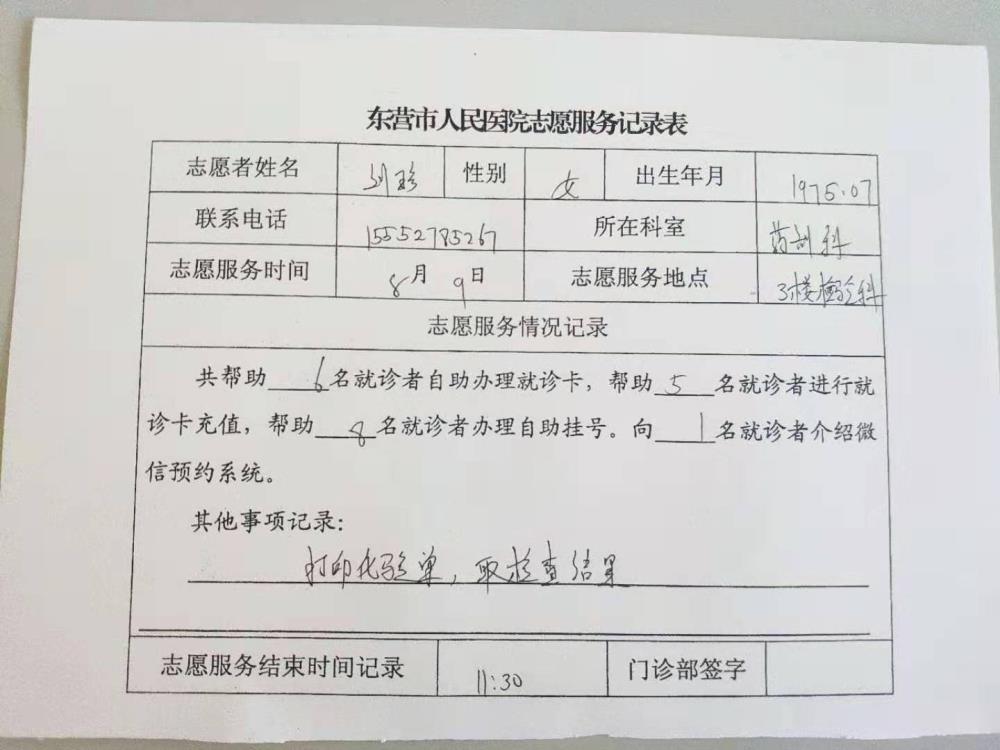 东营市人民医院志愿服务记录表
志愿者姓名 刘珍 性别 女 出生年月 1975.07
联系电话 15552785267 所在科室 药剂科
志愿服务时间 8月9日 志愿服务地点 3楼检验科
志愿服务情况记录
共帮助6名就诊者自助办理就诊卡，帮助5名就诊者进行就
诊卡充值，帮助8名就诊者办理自助挂号。向1名就诊者介绍微
信预约系统。
其他事项记录：
打印化验单，取检查结果
志愿服务结束时间记录 11:30 门诊部签字